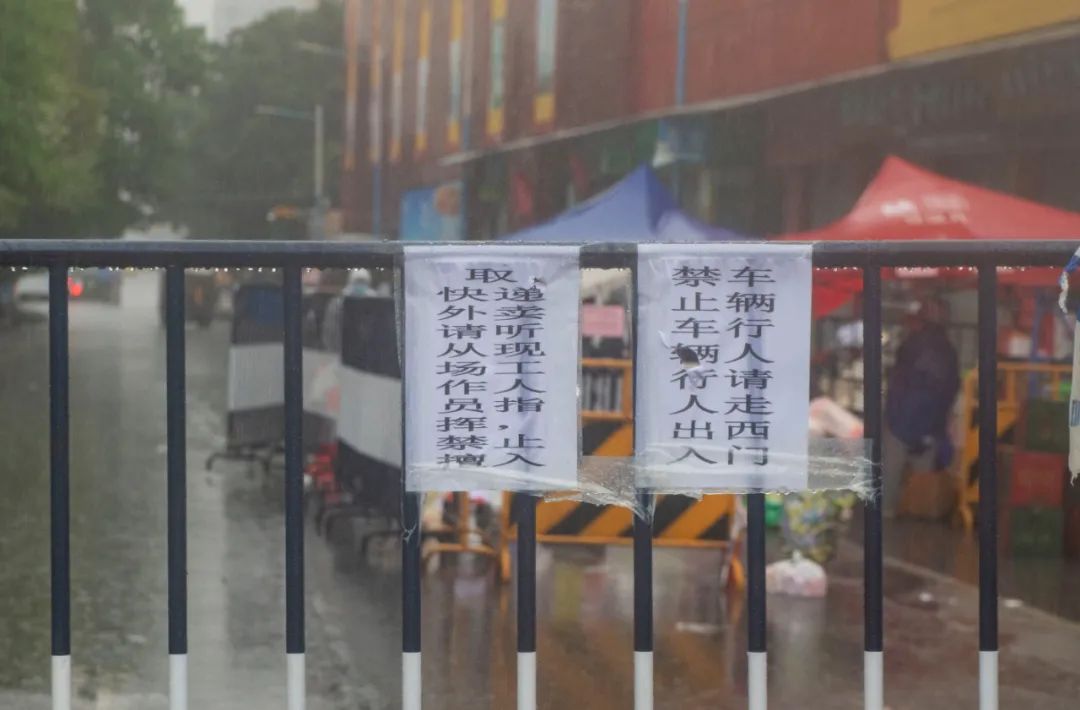 取
快递
外卖
请听
从现
场工
作人
员指
挥，
禁止
擅入
车辆行人请走西门
禁止车辆行人出入